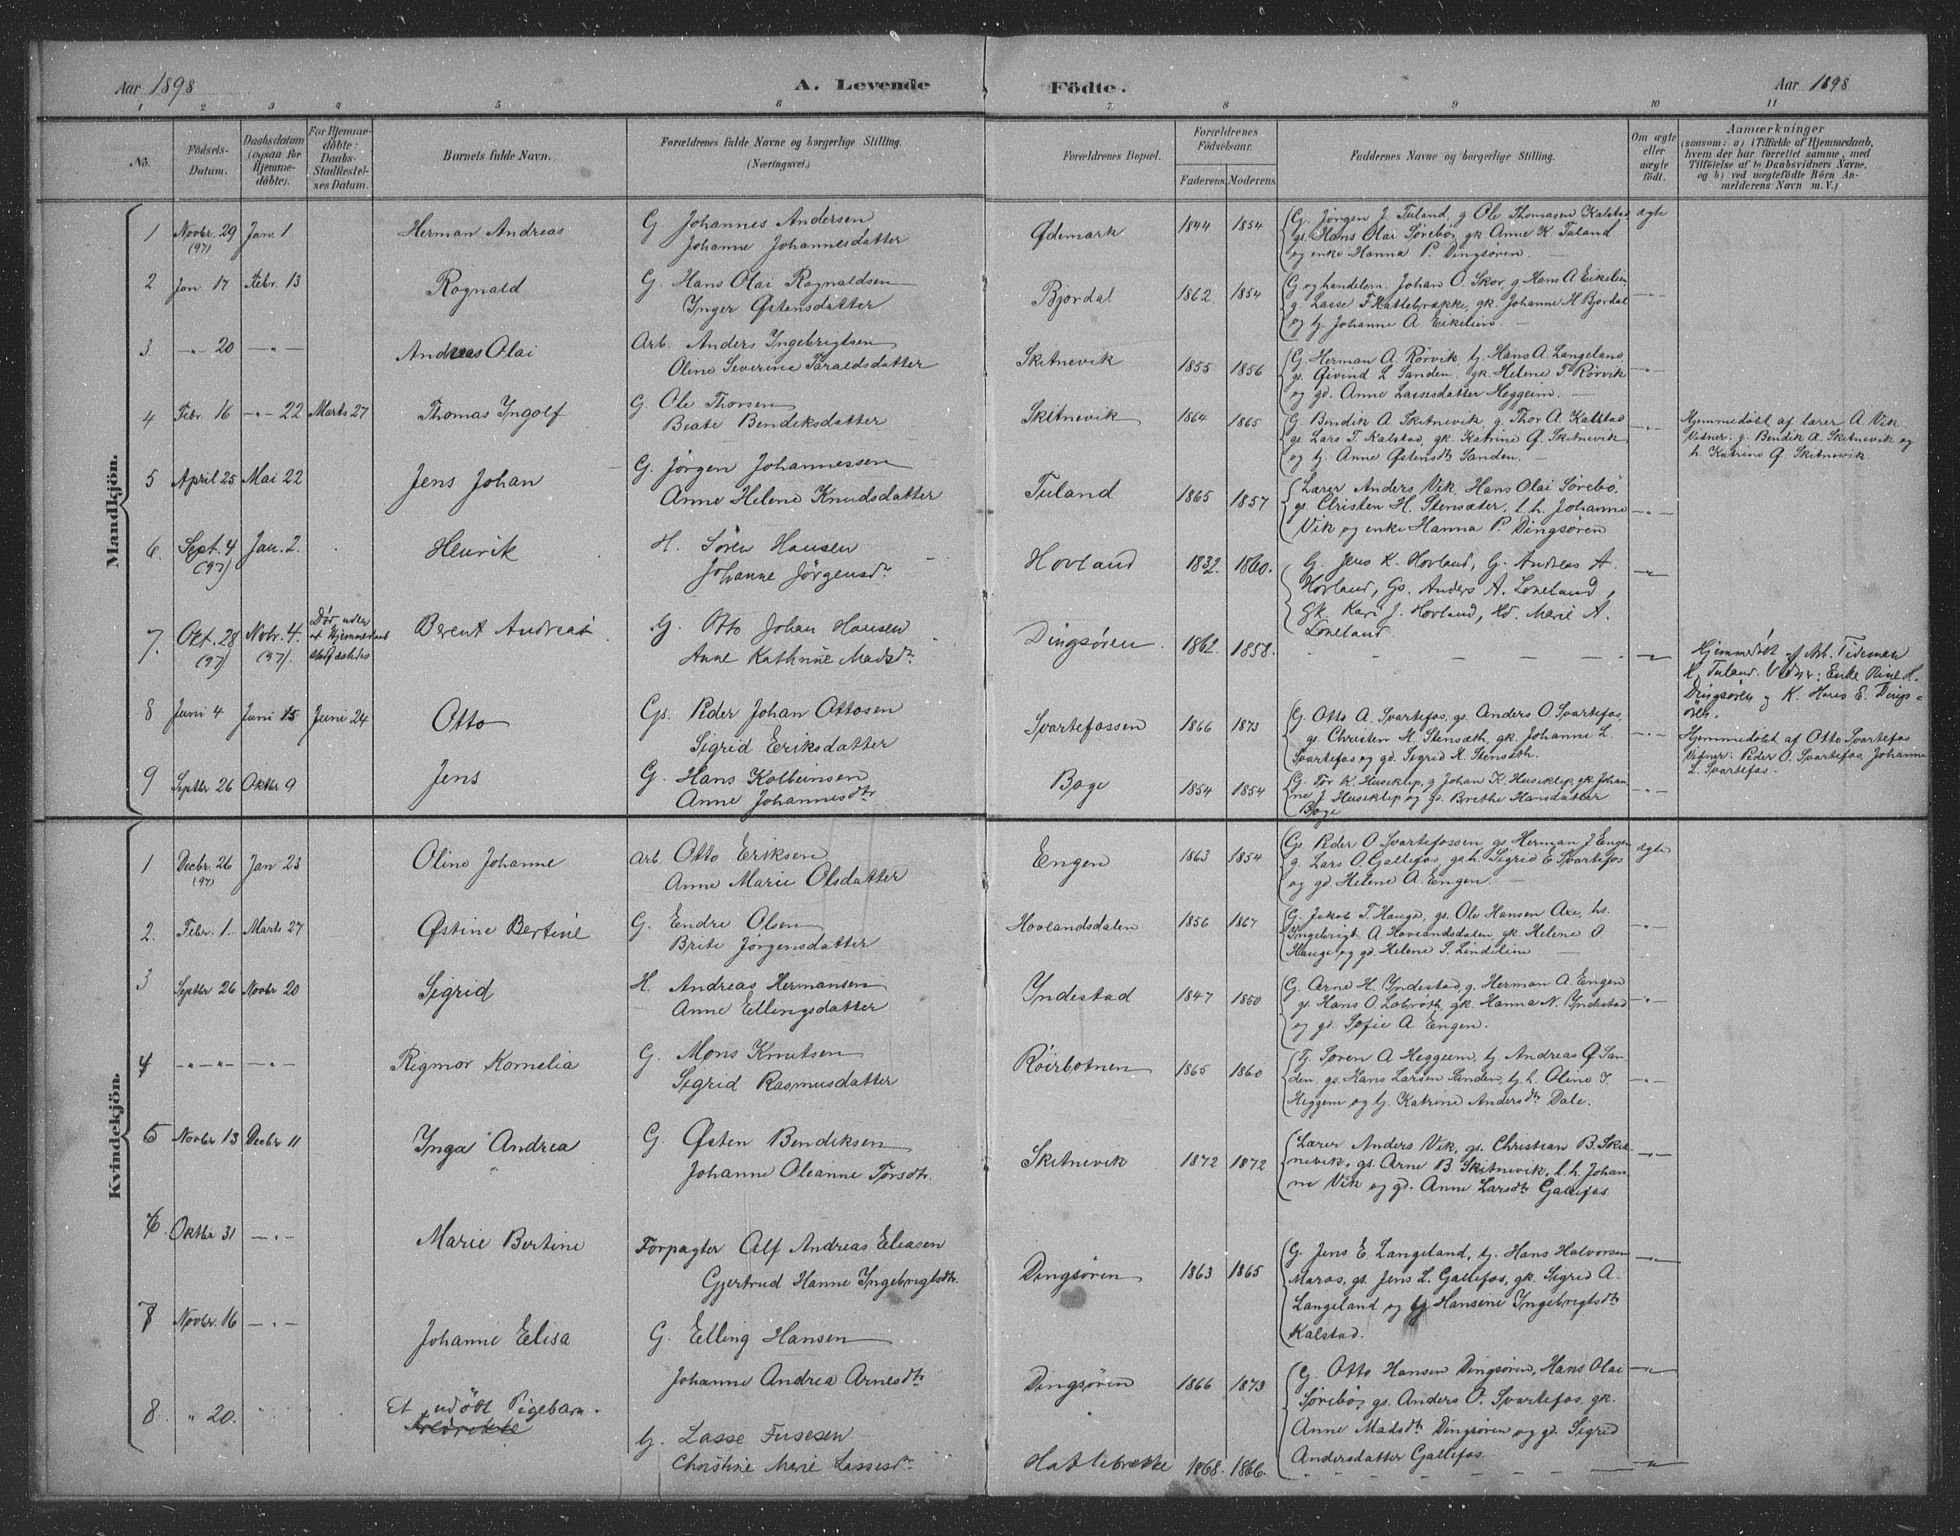 Aar 1898
A. Levende
Födte.
Aar 1898
1 2 3 4 5 6 7 8 9 10 11
No.
Födsels-
Datum.
Daabsdatum
(ogsaa for
Hjemme-
döbte).
For Hjemme-
döbte:
Daabs-
Stadfæstel-
ses Datum.
Barnets fulde Navn.
Forældrenes fulde Navne og borgerlige Stilling.
(Næringsvei.)
Forældrenes Bopæl.
Forældrenes
Födselsaar.
Faderens. Moderens.
Faddernes Navne og borgerlige Stilling.
Om ægte
eller
uægte
født.
Anmærkninger
(saasom: a) i Tilfælde af Hjemmedaab,
hvem der har forrettet samme, med
Tilföielse af to Daabsvidners Navne,
og b) ved uægtefödte Börn An-
melderens Navn m. V.)
Mandkjön.
1 Novbr. 29 (97) Jan. 1 Herman Andreas
G. Johannes Andersen
Johanne Johannesdatter
Ødemark 1844 1854
G. Jørgen J. Tuland, g Ole Thomasen Kalstad,
gs. Hans Olai Sørebø, gk. Anne K. Tuland
og enke Hanna P. Dingsøren.
ægte
2 Jan. 17 Febr. 13 Rognald
G. Hans Olai Rognaldsen
Inger Østensdatter
Bjordal 1862. 1854
G og handelsm. Johan O. Skor, g Hans A Eikelien
g. Lasse F Hattebrække, gk. Johanne H Bjordal
og tj. Johanne A. Eikelien.
3. -"- 20 -"- Andreas Olai
Arb. Anders Ingebrigtsen
Oline Severine Taraldsdatter
Skitnevik 1855 1856
G. Herman A. Rørvik, tj. Hans A. Langeland,
gs. Øivind L Sanden, gk. Helene T. Rørvik
og gd. Anne Lassesdatter Heggeim.
4 Febr. 16 -"- 22 Marts 27 Thomas Ingolf
G. Ole Thorsen
Beate Bendiksdatter
Skitnevik 1864 1865
G. Bendik A. Skitnevik, g. Thor A. Kalstad
gs. Lars T. Kalstad, gk. Katrine Ø. Skitnevik
og tj. Anne Østensdtr Sanden.
Hjemmedøbt af lærer A. Vik.
Vidner: g. Bendik A. Skitnevik og
h. Katrine Ø. Skitnevik.
5 April 25 Mai 22 Jens Johan
G. Jørgen Johannessen
Anne Helene Knudsdatter
Tuland 1865 1857
Lærer Anders Vik, Hans Olai Sørebø,
gs. Christen H. Stensæter, l.h. Johanne
Vik og enke Hanna P. Dingsøren
6. Sept. 4 (97) Jan. 2. Henrik
H. Sören Hansen
Johanne Jörgensdr
Hovland 1832. 1860.
G. Jens K. Hovland, G. Andreas A.
Hovland, Gs. Anders A. Loneland,
Gk. Kari J. Hovland, Marie A.
Loneland.
7. Okt. 28 (97) Novbr. 4. (97).
Berent Andreas
G. Otto Johan Hansen
Anne Kathrine Madsdr
Dingsøren. 1862. 1858.
Hjemmedöbt af Arb. Tideman
H. Tuland. Vidner: Enke Oline H.
Dingsören og K. Hans E. Dings-
ören.
8 Juni 4 Juni 15 Juni 24 Otto
Gs. Peder Johan Ottosen
Sigrid Eriksdatter
Svartefossen 1866 1873
G. Otto A. Svartefos, gs. Anders O. Svartefos,
gs. Christen H. Stensæth, gk. Johanne L.
Svartefos og gd. Sigrid H. Stensæth.
Hjemmedøbt af Otto Svartefos
Vidner: Peder O. Svartefos, Johanne
L. Svartefos.
9 Septbr 26 Oktbr 9 Jens
G. Hans Kolbeinsen
Anne Johannesdtr
Boge 1854 1854
G. Tor K. Huseklep, g Johan K. Huseklep, gk. Johan-
ne J Huseklep og gs. Brithe Hansdatter
Boge
Kvindekjön.
1 Decbr. 26 (97) Jan 23 Oline Johanne
Arb. Otto Eriksen
Anne Marie Olsdatter
Engen 1863 1854
Gs. Peder O. Svartefossen, gs. Herman J. Engen
g. Lars O Gallefos, Sigrid E. Svartefos
og gd. Helene A. Engen.
ægte
2. Febr. 1. Marts 27 Østine Bertine
G. Endre Olsen
Brite Jørgensdatter
Hovlandsdalen 1856 1867
G. Jakob T. Hauge, gs. Ole Hansen Axe, hs.
Ingebrigt A Hovlandsdalen, gk. Helene O.
Hauge og gd. Helene S. Lindelien.
3 Septbr 26 Novbr 20 Sigrid
H. Andreas Hermansen
Anne Ellingsdatter
Yndestad 1847 1850
G. Arne H. Yndestad, g. Herman A. Engen
gs. Hans O. , gk. Hanna N. Yndestad
og gd. Sofie A. Engen.
4 -"- -"- -"- Rigmor Kornelia
G. Mons Knutsen
Sigrid Rasmusdatter
Röirbotnen 1865 1860
Tj. Søren A Heggeim, tj. Andreas Ø San-
den, gs. Hans Larsen Sanden, tj.h. Oline S.
Heggeim og tj. Katrine Andersdtr Dale.
5 Novbr 13 Decbr 11 Inga Andrea
G. Østen Bendiksen
Johanne Oleanne Torsdtr.
Skitnevik 1872 1872
Lærer Anders Vik, gs. Christian B. Skit-
nevik, gs. Arne B. Skitnevik, l.h. Johan-
ne Vik og gd. Anne Larsdtr Gallefos.
6. Oktbr 31 -"- Marie Bertine
Forpagter Alf Andreas Eliasen
Gjertrud Hanne Ingebrigtsdtr.
Dingsøren 1863 1865
G. Jens E. Langeland, tj. Hans Halvorsen
Maras, gs. Jens L. Gallefos, gk. Sigrid A.
Langeland og tj Hansine Ingebrigtsdtr
Kalstad.
7 Novbr. 16 -"- Johanne Elisa
G. Elling Hansen
Johanne Andrea Arnesdtr
Dingsøren 1866 1873
G. Otto Hansen Dingsøren, Hans Olai
Sørebø, gs. Anders O. Svartefos, gk.
Anne Madsdtr Dingsøren og gd. Sigrid
Andersdatter Gallefos.
8. " 20. Et udöbt Pigebarn.
G. Lasse Fusesen
Christine Marie Lassesdr
Hattebrække 1868. 1866.